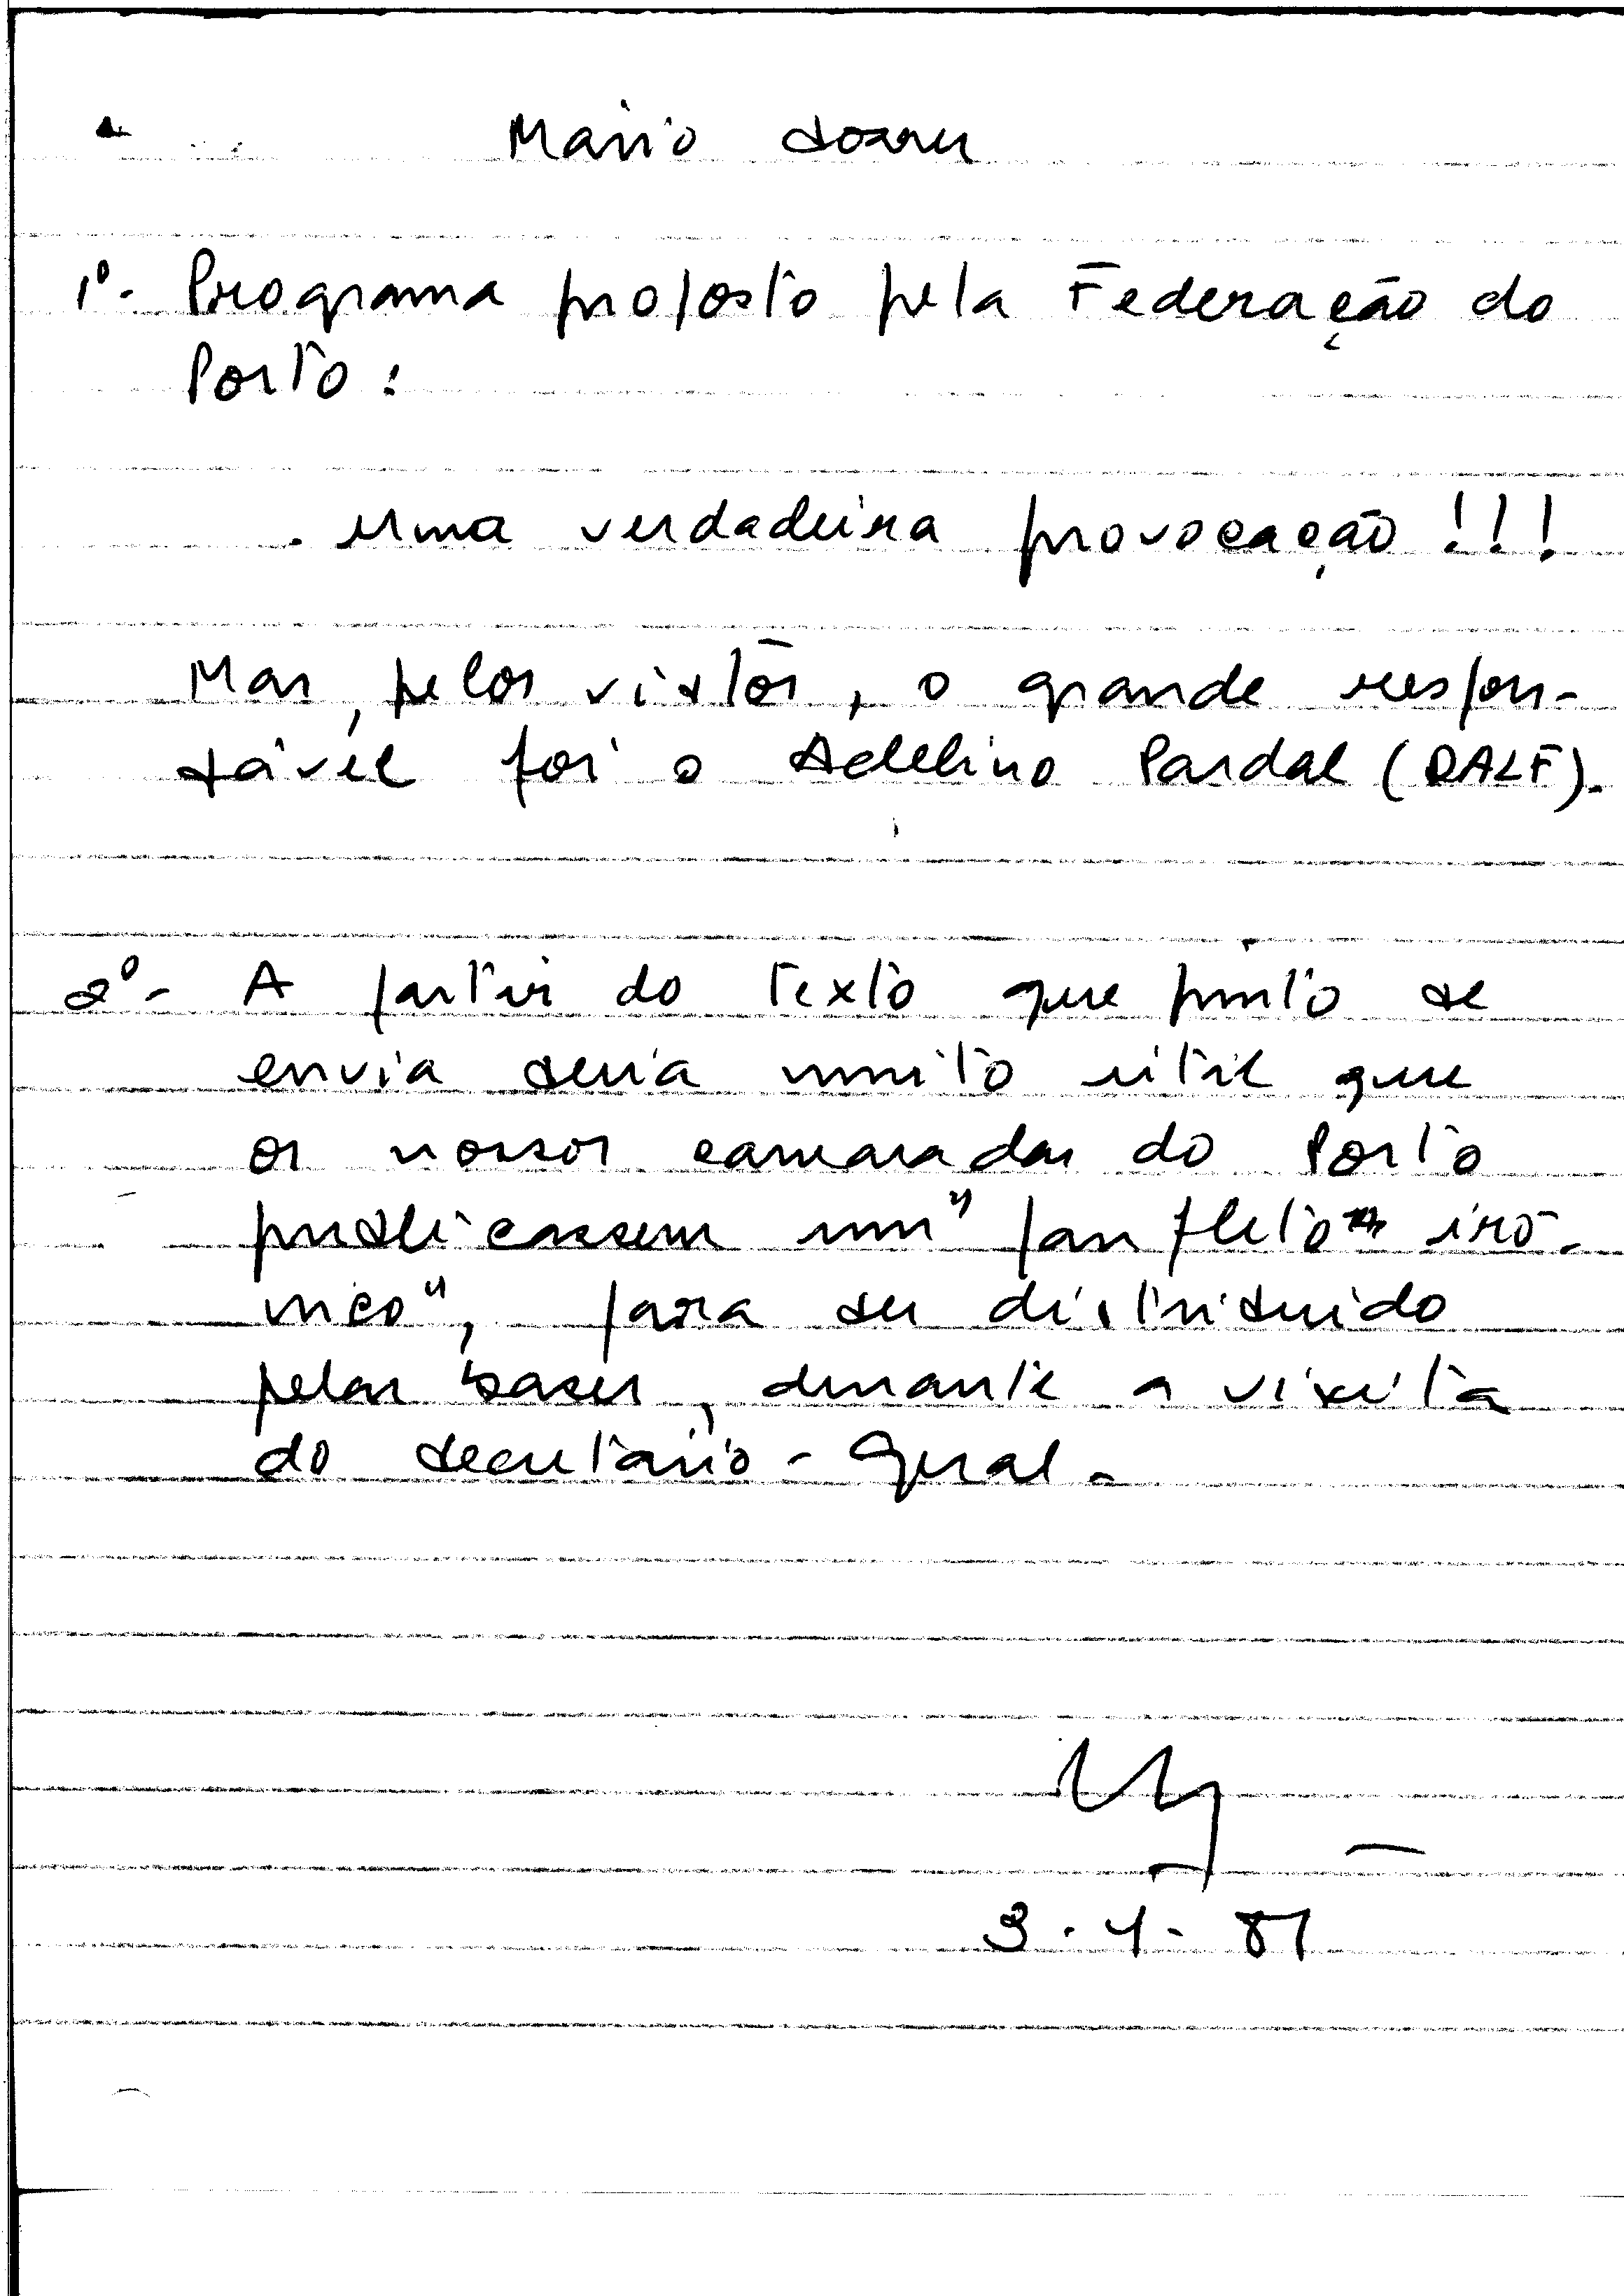 Mário Soares
1º- Programa proposto pela Federação do
Porto:
. uma verdadeira provocação!!!
Mas, pelos vistos, o grande respon-
sável foi o Adelino Pardal (DALF).
2º- A partir do texto que junto se
envia seria muito útil que
os nossos camaradas do Porto
publicassem um "panfleto iró-
nico", para ser distribuido
pelas bases, durante a visita
do Secretário-Geral.
3.4.81